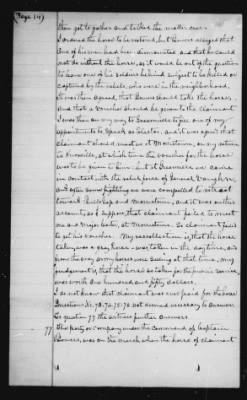 Page 119)
them get to gather and talked the matter over.
I ordered the horse to be restored, but Bowers alleged that
one of his men had been dismounted and that he could
not do without the horse, as it would be out of the question
to leave one of his soldiers behind subject to be killed or
captured by the rebels, who were in the neighborhood.
It was then agreed, that Bowers should take the horse,
and that a voucher should be given to the claimant
I was then on my way to Greeneville to fill one of my
appointments to speak as elector, and it was agreed that
claimant should meet us at Morristown, on my return
to Knoxville, at which time the voucher for the horse
was to be given to him. but at Greeneville we came
in contact with the rebel force of General Vaughn's,
and after some fighting we were compelled to retreat
toward Bulls Gap and Morristown, and it was on this
account, as I suppose, that claimant failed to meet
me and Major at Morristown. So claimant failed
to get his voucher. My recollection is, that the horse
taken was a gray horse was taken in the day time, and
from the way army horses were selling at that time, my
judgement is, that the horse so taken for the public service,
was worth one hundred and fifty dollars.
I do not know that claimant was ever paid for the horse
Questions No. 73-74-75-76 not deemed necessary to answer
To question 77 the witness further answers
77 The party or company under the command of Captain
Bowers, was on the march when the horse of claimant